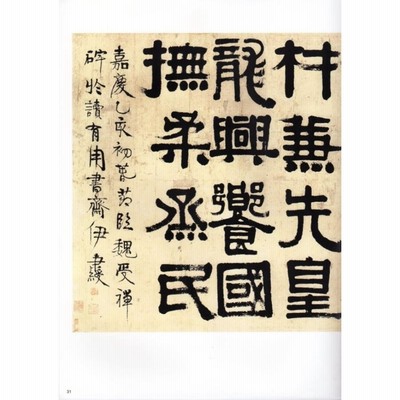 材兼先皇
龍興饗國
撫柔烝民
嘉慶乙亥初臨魏受禪
碑於讀有用書齋伊秉綬